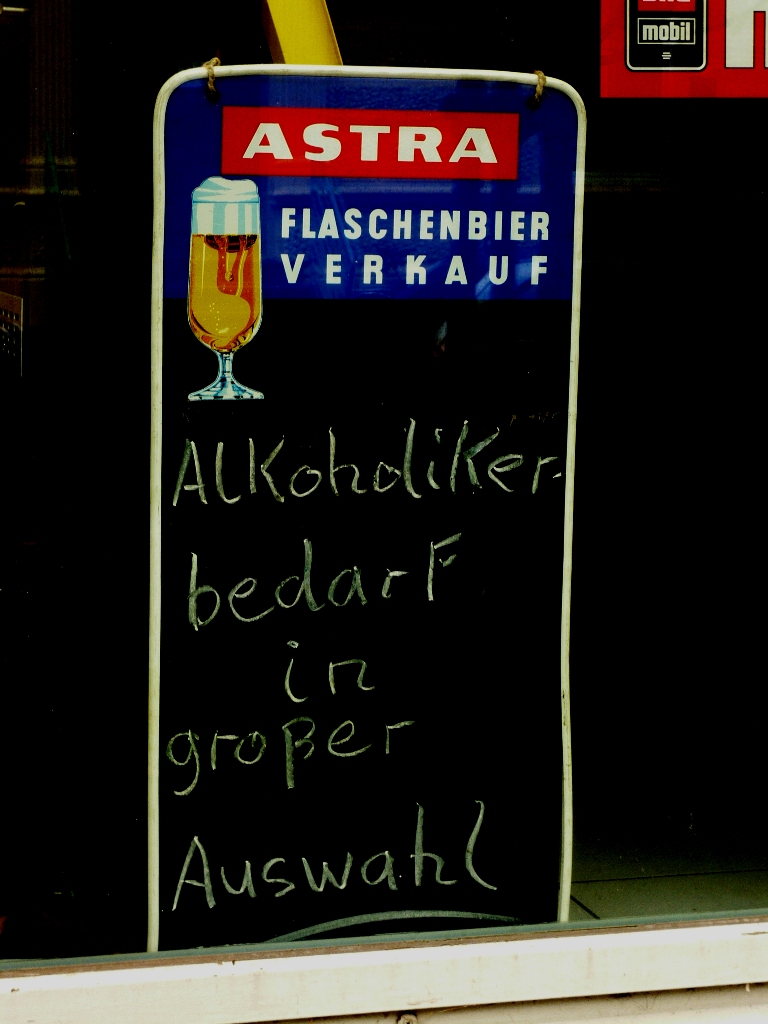 mobil
ASTRA
FLASCHENBIER
VERKAUF
Alkoholiker-
bedarf
in
großer
Auswahl